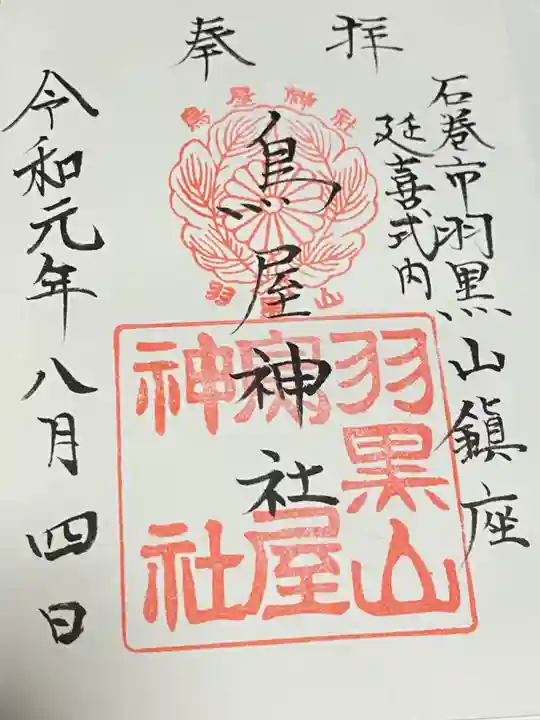 奉拝
石巻市羽黒山鎮座
延喜式内
鳥屋神社
令和元年八月四日
鳥屋神社
羽 山
羽黒山
鳥屋
神社